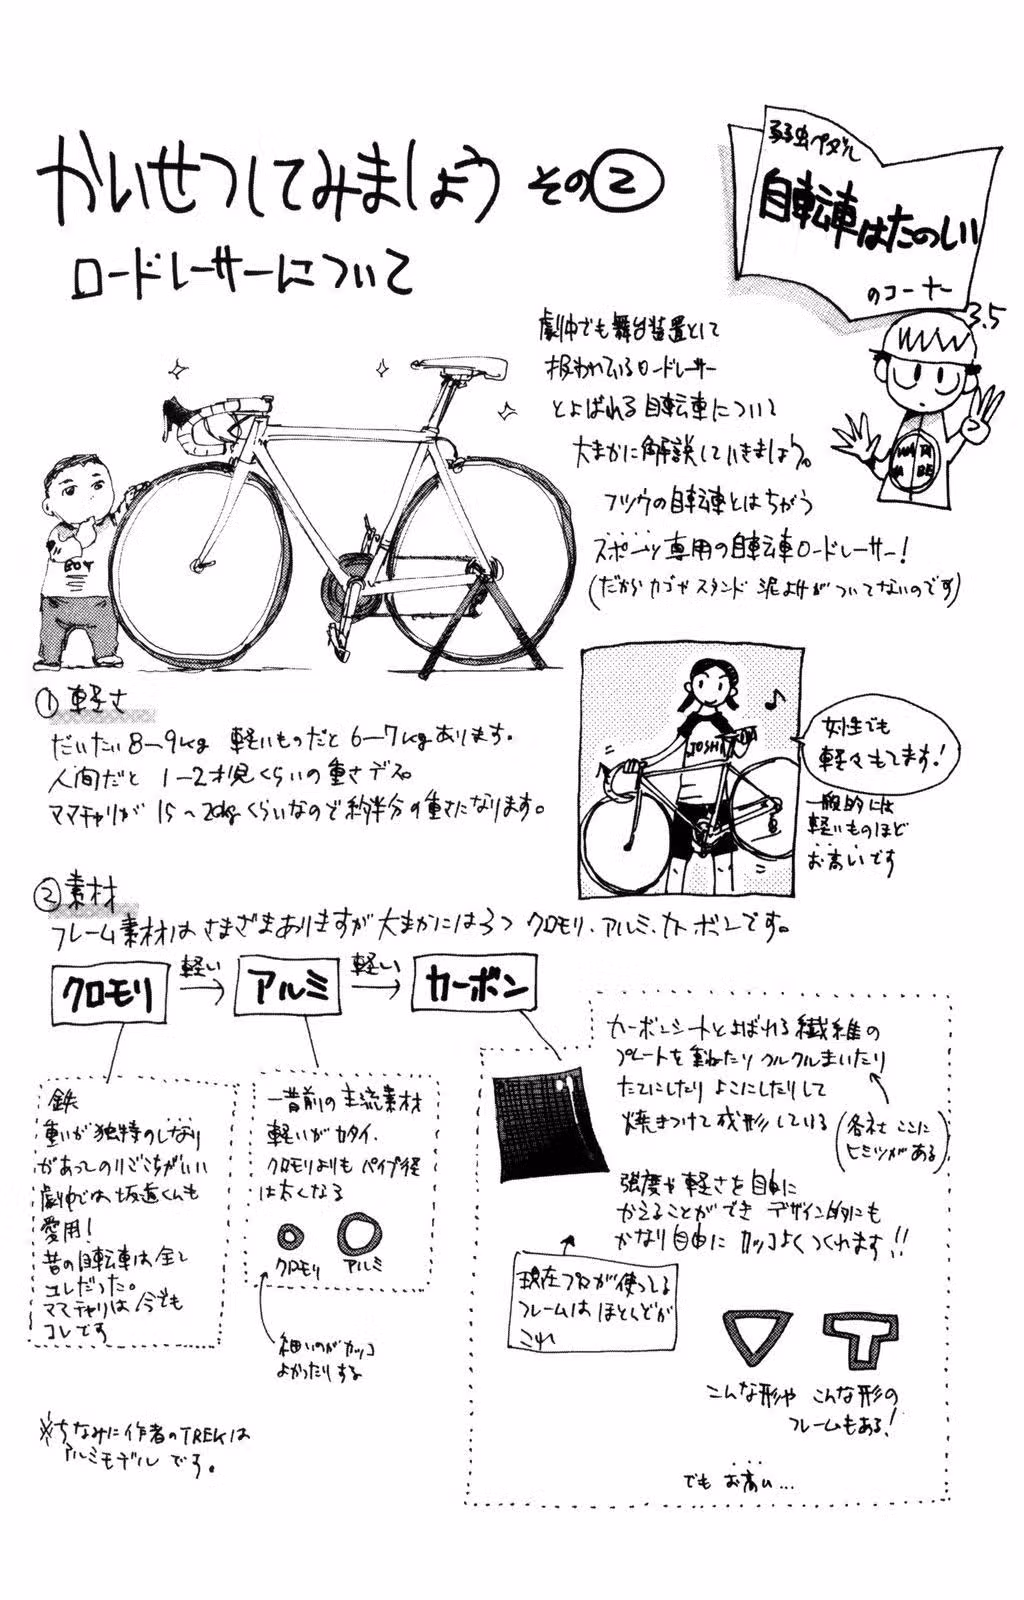 かいせつしてみましょう その②
ロードレーサーについて
弱虫ペダル
自転車はたのしい
のコーナー
3.5
劇中でも舞台装置として
扱われているロードレーサー
とよばれる自転車について
大まかに解説していきましょう。
フツウの自転車とはちがう
スポーツ専用の自転車ロードレーサー!
(だからカゴやスタンド 泥よけがついてないのです)
WA TA
NA BE
BOY
①軽さ
だいたい8〜9kg 軽いものだと6〜7kgあります。
人間だと 1〜2才児くらいの重さデス。
ママチャリが 15〜20kgくらいなので約半分の重さになります。
JOSHI
女性でも
軽々もてます!
一般的には
軽いものほど
お高いです
②素材
フレーム素材はさまざまありますが大まかには3つ クロモリ、アルミ、カーボンです。
クロモリ
軽い
アルミ
軽い
カーボン
鉄
重いが独特のしなり
があってのりごこちがいい
劇中では、坂道くんも
愛用!
昔の自転車は全て
コレだった。
ママチャリは今でも
コレです
一昔前の主流素材
軽いがカタイ、
クロモリよりも パイプ径
は太くなる
クロモリ アルミ
細いのがカッコ
よかったりする
カーボンシートとよばれる繊維の
プレートを重ねたり クルクルまいたり
たてにしたり よこにしたりして
焼きつけて成形している
(各社 ここに
ヒミツがある)
強度や軽さを自由に
かえることができ デザイン的にも
かなり自由に カッコよくつくれます!!
現在プロが使ってる
フレームは ほとんどが
これ
こんな形や こんな形の
フレームもある!
でも お高い…
※ちなみに作者のTREKは
アルミモデルです。